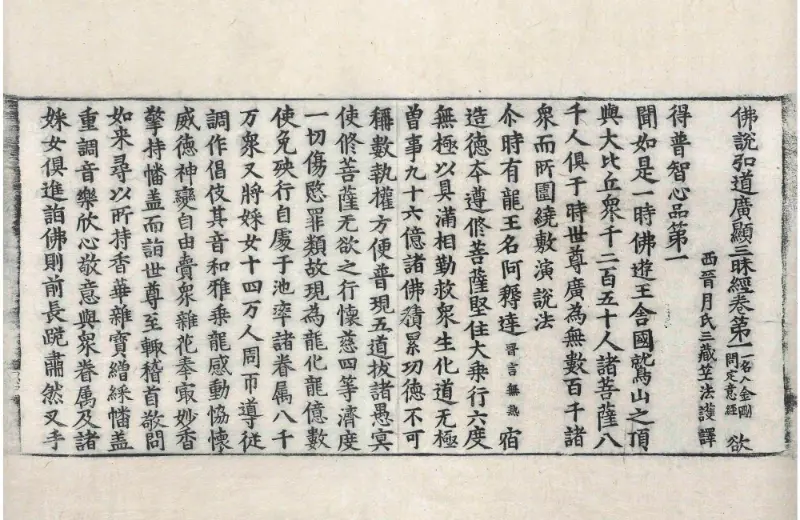 佛說弘道廣顯三昧經卷第一 一名入金剛問定意經 欲
西晉月氏三藏竺法護譯
得普智心品第一
聞如是一時佛遊王舍國鷲山之頂
與大比丘衆千二百五十人諸菩薩八
千人俱于時世尊廣為無數百千諸
衆而所圍繞敷演說法
尒時有龍王名阿耨達 晉言無熱 宿
造德本遵修菩薩堅住大乘行六度
無極以具滿相勤救衆生化道无極
曽事九十六億諸佛積累功德不可
稱數執權方便普現五道拔諸愚冥
使修菩薩无欲之行懷慈四等濟度
一切傷愍罪類故現為龍化龍億數
使免殃行自處于池率諸眷属八千
万衆又將婇女十四万人周帀導従
調作倡伎其音和雅乗龍感動恊懷
威德神變自由賷衆雜花奉㝡妙香
擎持幡盖而詣世尊至輙稽首敬問
如来尋以所持香華雜寶繒綵幡盖
重調音樂欣心敬意與衆眷属及諸
婇女俱進詣佛則前長跪肅然叉手